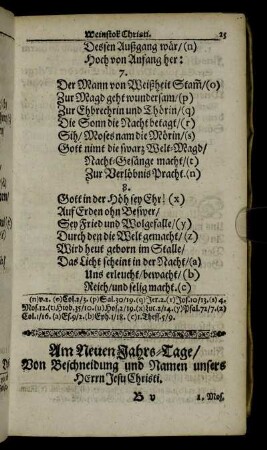 Weinstok Christi. 25
Dessen Außgang wär/(n)
Hoch von Anfang her:
7.
Der Mann von Weißheit Stam̃/(o)
Zur Magd geht wundersam/(p)
Zur Ehbrechrin und Thörin/(q)
Die Sonn die Nacht betagt/(r)
Sih/ Moses nam die Mörin/(s)
Gott nimt die swarz Welt-Magd/
Nacht-Gesänge macht/(t)
Zur Verlöbnis Pracht.(u)
8.
Gott in der Höh sey Ehr! (x)
Auf Erden ohn Beswer/
Sey Fried und Wolgefalle/(y)
Durch den die Welt gemacht/(z)
Wird heut geborn im Stalle/
Das Licht scheint in der Nacht/(a)
Uns erleucht/bewacht/(b)
Reich/und selig macht.(c)
(n) v.2. (o) Col.2/3. (p) Sal.30/19. (q) Jer.2. (r) Jos.10/13. (s) 4.
Mos.12. (t) Hiob.35/10. (u) Hos.2/19. (x) Luc.2/14. (y) Psal.72/7. (z)
Col.1/16. (a) Es.9/2. (b) Eph.1/18. (c) 1.Thess.5/9.
Am Neuen Jahrs-Tage/
Von Beschneidung und Namen unsers
HErrn Jesu Christi.
B v 1. Mos.